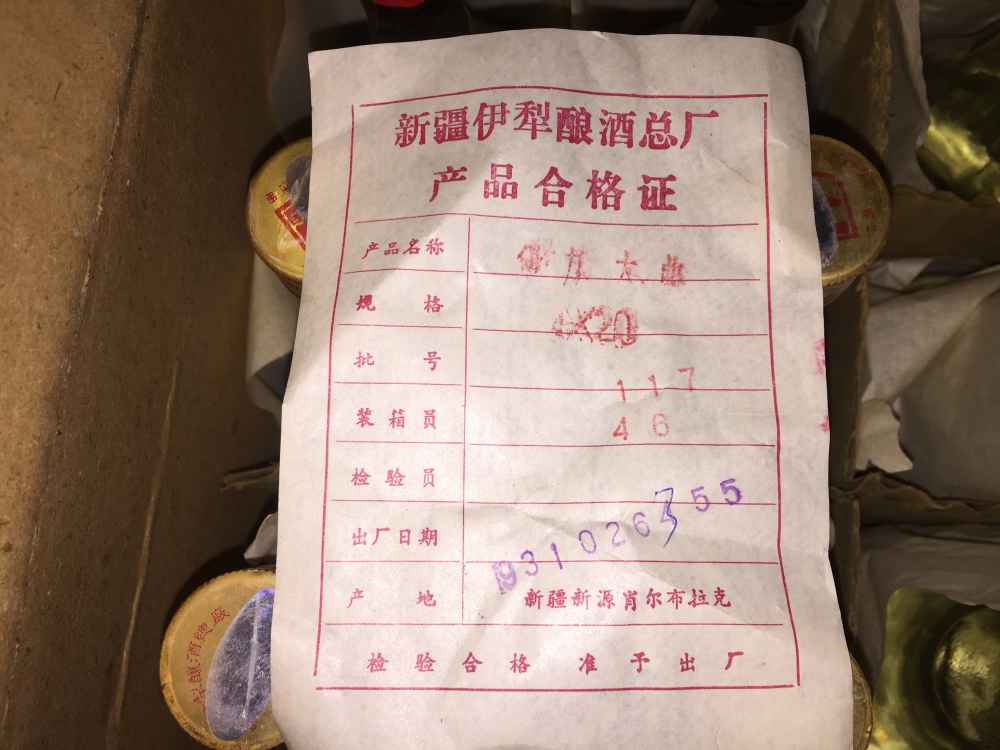 新疆伊犁酿酒总厂
产品合格证
产品名称 伊犁大曲
规格 ×20
批号 117
装箱员 46
检验员 55
出厂日期 931026
产地 新疆新源肖尔布拉克
检验合格 准予出厂
酿酒总厂